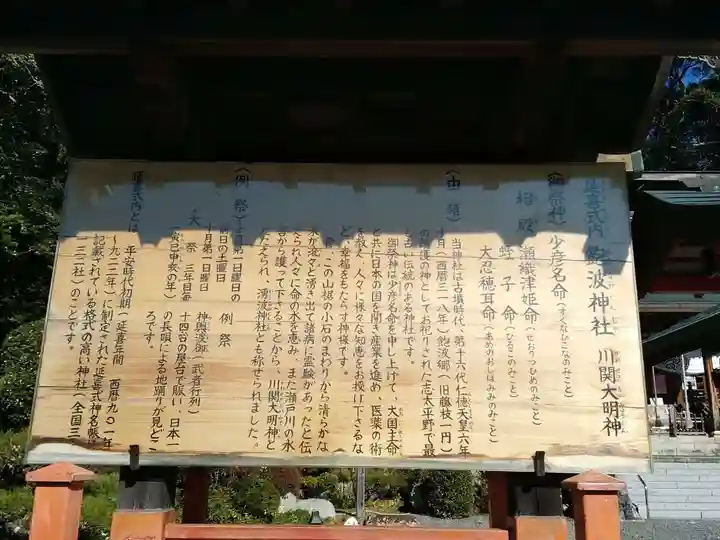 延喜式内 飽波神社 川関大明神
(御祭神)少彦名命(すくなひこなのみこと)
相殿 瀬織津姫命(せおりつひめのみこと)
蛭子命(ひるこのみこと)
天忍穂耳命(あめのおしほみみのみこと)
(由緒)
当神社は古墳時代、第十六代仁徳天皇六年
十月(西暦三一八年)飽波郷(旧藤枝一円)
の守護の神としてお祀りされた志太平野で最
も古い伝統のある神社です。
御祭神は少彦名命を申し上げて、大国主命
と共に日本の国を開き産業を進め、医薬の術
を教え、人々に様々な知恵をお授け下さるな
ど、幸福をもたらす神様です。
この山裾の小石のまわりから清らかな
水が滾々と湧き出て諸病に霊験があったと伝
えられ人々に命の水を恵み、また瀬戸川の水
害から護って下さることから、川関大明神と
たたえられ、湧波神社とも称せられました。
(例祭)
日曜日の
前日の土曜日 例祭
十月第一日曜日 神輿渡御(武者行列)
大祭 三年目毎 十四台の屋台で賑い、日本一
(寅巳申亥の年) の長唄による地踊りが見どこ
ろです。
延喜式内とは、平安時代初期(延喜年間 西暦九〇一年
〜九二三年)に制定された延喜式神名帳に
記載されている格式の高い神社(全国三一
三二社)のことです。